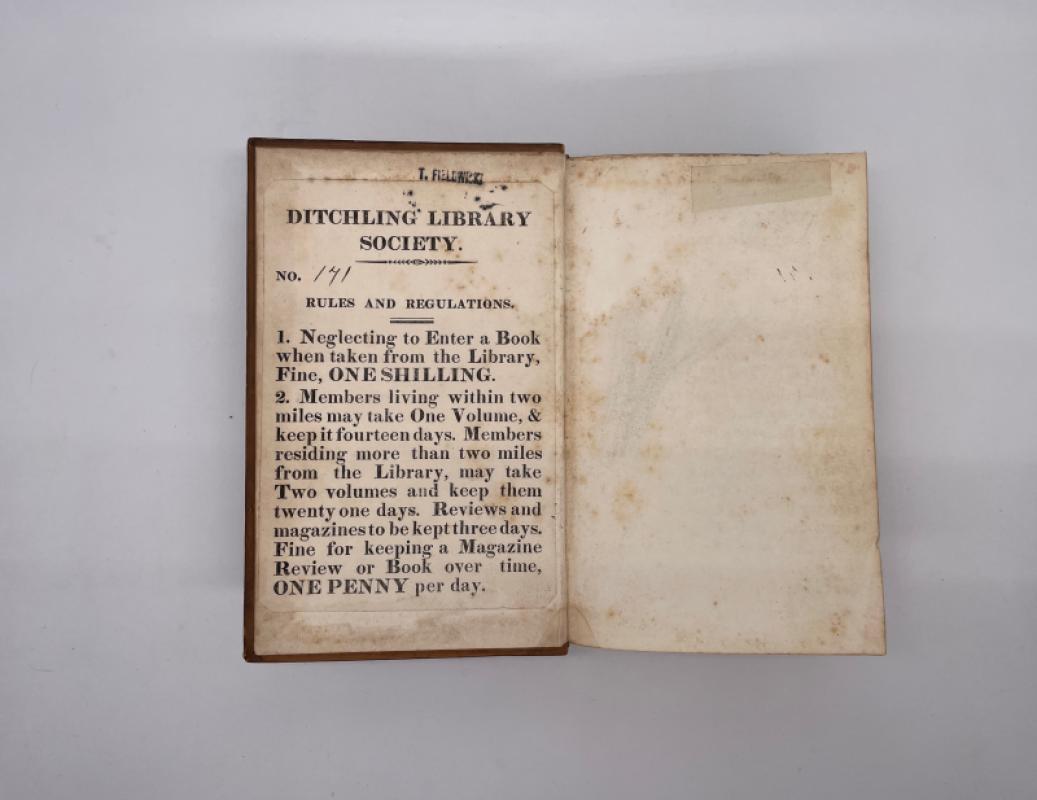 DITCHLING LIBRARY
SOCIETY.
NO. 171
RULES AND REGULATIONS.
1. Neglecting to Enter a Book
when taken from the Library,
Fine, ONE SHILLING.
2. Members living within two
miles may take One Volume, &
keep it fourteen days. Members
residing more than two miles
from the Library, may take
Two volumes and keep them
twenty one days. Reviews and
magazines to be kept three days.
Fine for keeping a Magazine
Review or Book over time,
ONE PENNY per day.